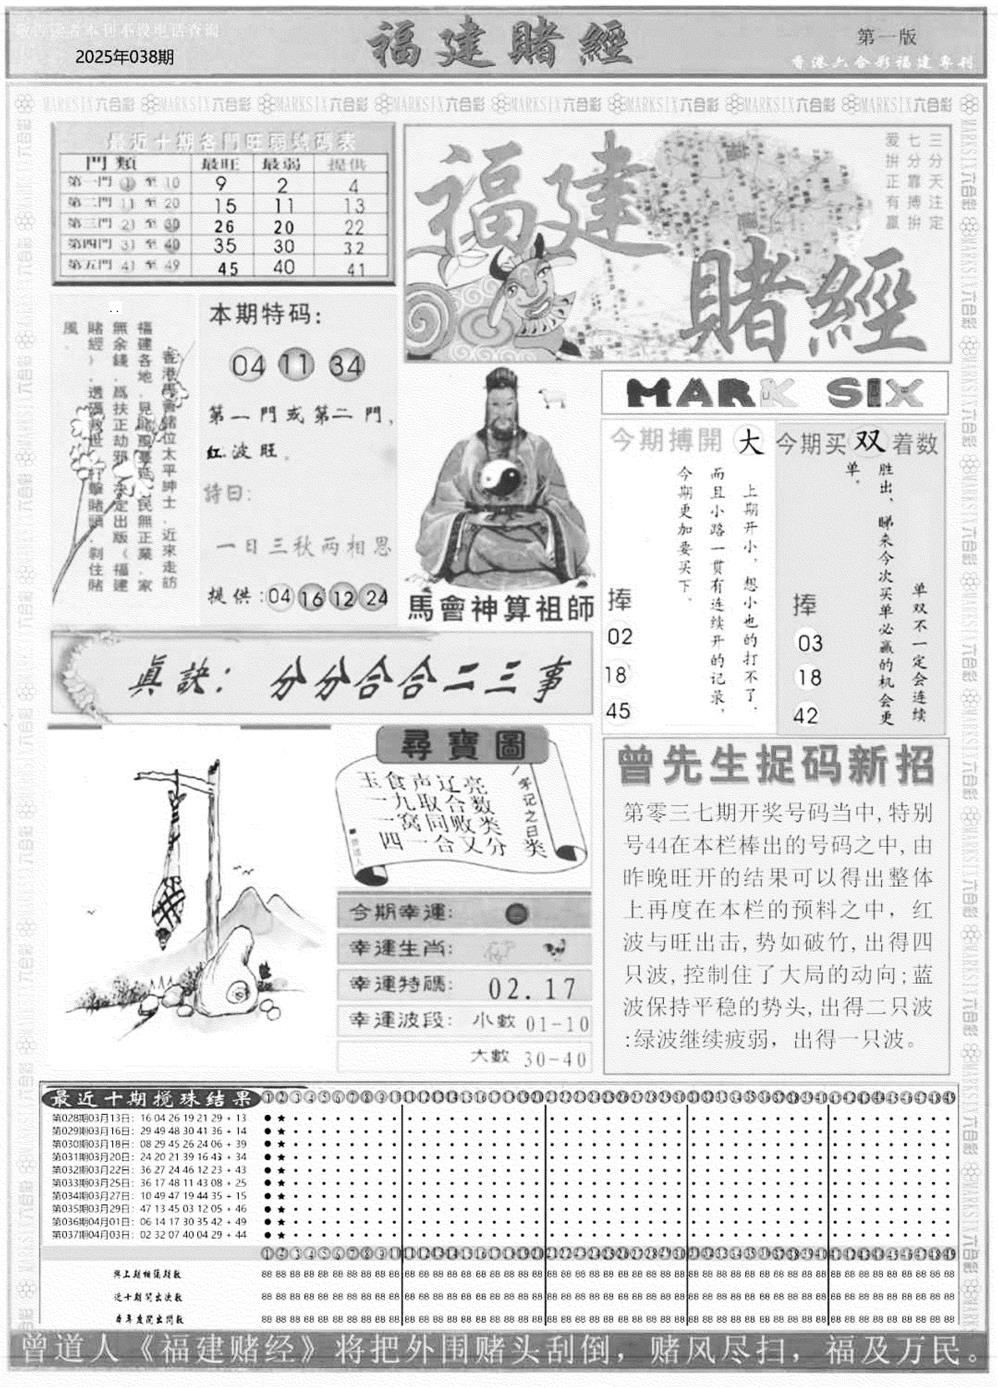 敬告读者本刊不设电话查询
2025年038期
福建賭經
第一版
香港六合彩福建專刊
MARKSIX六合彩 MARKSIX六合彩 MARKSIX六合彩 MARKSIX六合彩 MARKSIX六合彩 MARKSIX六合彩 MARKSIX六合彩 MARKSIX六合彩
最近十期各門旺弱號碼表
門類 最旺 最弱 提供
第一門 1 至 10 9 2 4
第二門 11 至 20 15 11 13
第三門 21 至 30 26 20 22
第四門 31 至 40 35 30 32
第五門 41 至 49 45 40 41
福建
賭經
三分天注定
七分靠搏拚
爱拚正有贏
香港馬會諸位太平紳士．近來走訪
福建各地．見賭風蔓延．民無正業．家
無余錢．爲扶正劫邪．决定出版《福建
賭經》．透碼救世．打擊賭頭．剎住賭
風．
本期特码：
04 11 34
第一門或第二門，
红波旺。
詩曰：
一日三秋两相思
提供：04 16 12 24
馬會神算祖師
MARK SIX
今期搏開 大
上期开小，想小也的打不了，
而且小路一贯有连续开的记录，
今期更加要买下。
捧
02
18
45
今期买 双 着数
单双不一定会连续
胜出，睇来今次买单必赢的机会更
单。
捧
03
18
42
真訣：分分合合二三事
尋寶圖
一字记之曰类
玉食声辽亮
一九取合数
一窝同败类
四一合又分
曾道人
今期幸運：
幸運生肖：
幸運特碼：02.17
幸運波段：小數 01-10
大數 30-40
曾先生捉码新招
第零三七期开奖号码当中,特别
号44在本栏棒出的号码之中,由
昨晚旺开的结果可以得出整体
上再度在本栏的预料之中，红
波与旺出击,势如破竹,出得四
只波,控制住了大局的动向;蓝
波保持平稳的势头,出得二只波
:绿波继续疲弱，出得一只波。
最近十期搅珠结果
第028期03月13日：16 04 26 19 21 29 + 13
第029期03月16日：29 49 48 30 41 36 + 14
第030期03月18日：08 29 45 26 24 06 + 39
第031期03月20日：24 20 21 39 16 43 + 34
第032期03月22日：36 27 24 46 12 23 + 43
第033期03月25日：36 17 48 11 43 08 + 25
第034期03月27日：10 49 47 19 44 35 + 15
第035期03月29日：47 13 45 03 12 05 + 46
第036期04月01日：06 14 17 30 35 42 + 49
第037期04月03日：02 32 07 40 04 29 + 44
與上期相隔期數
近十期開出次數
本年度開出期數
曾道人《福建赌经》将把外围赌头刮倒，赌风尽扫，福及万民。